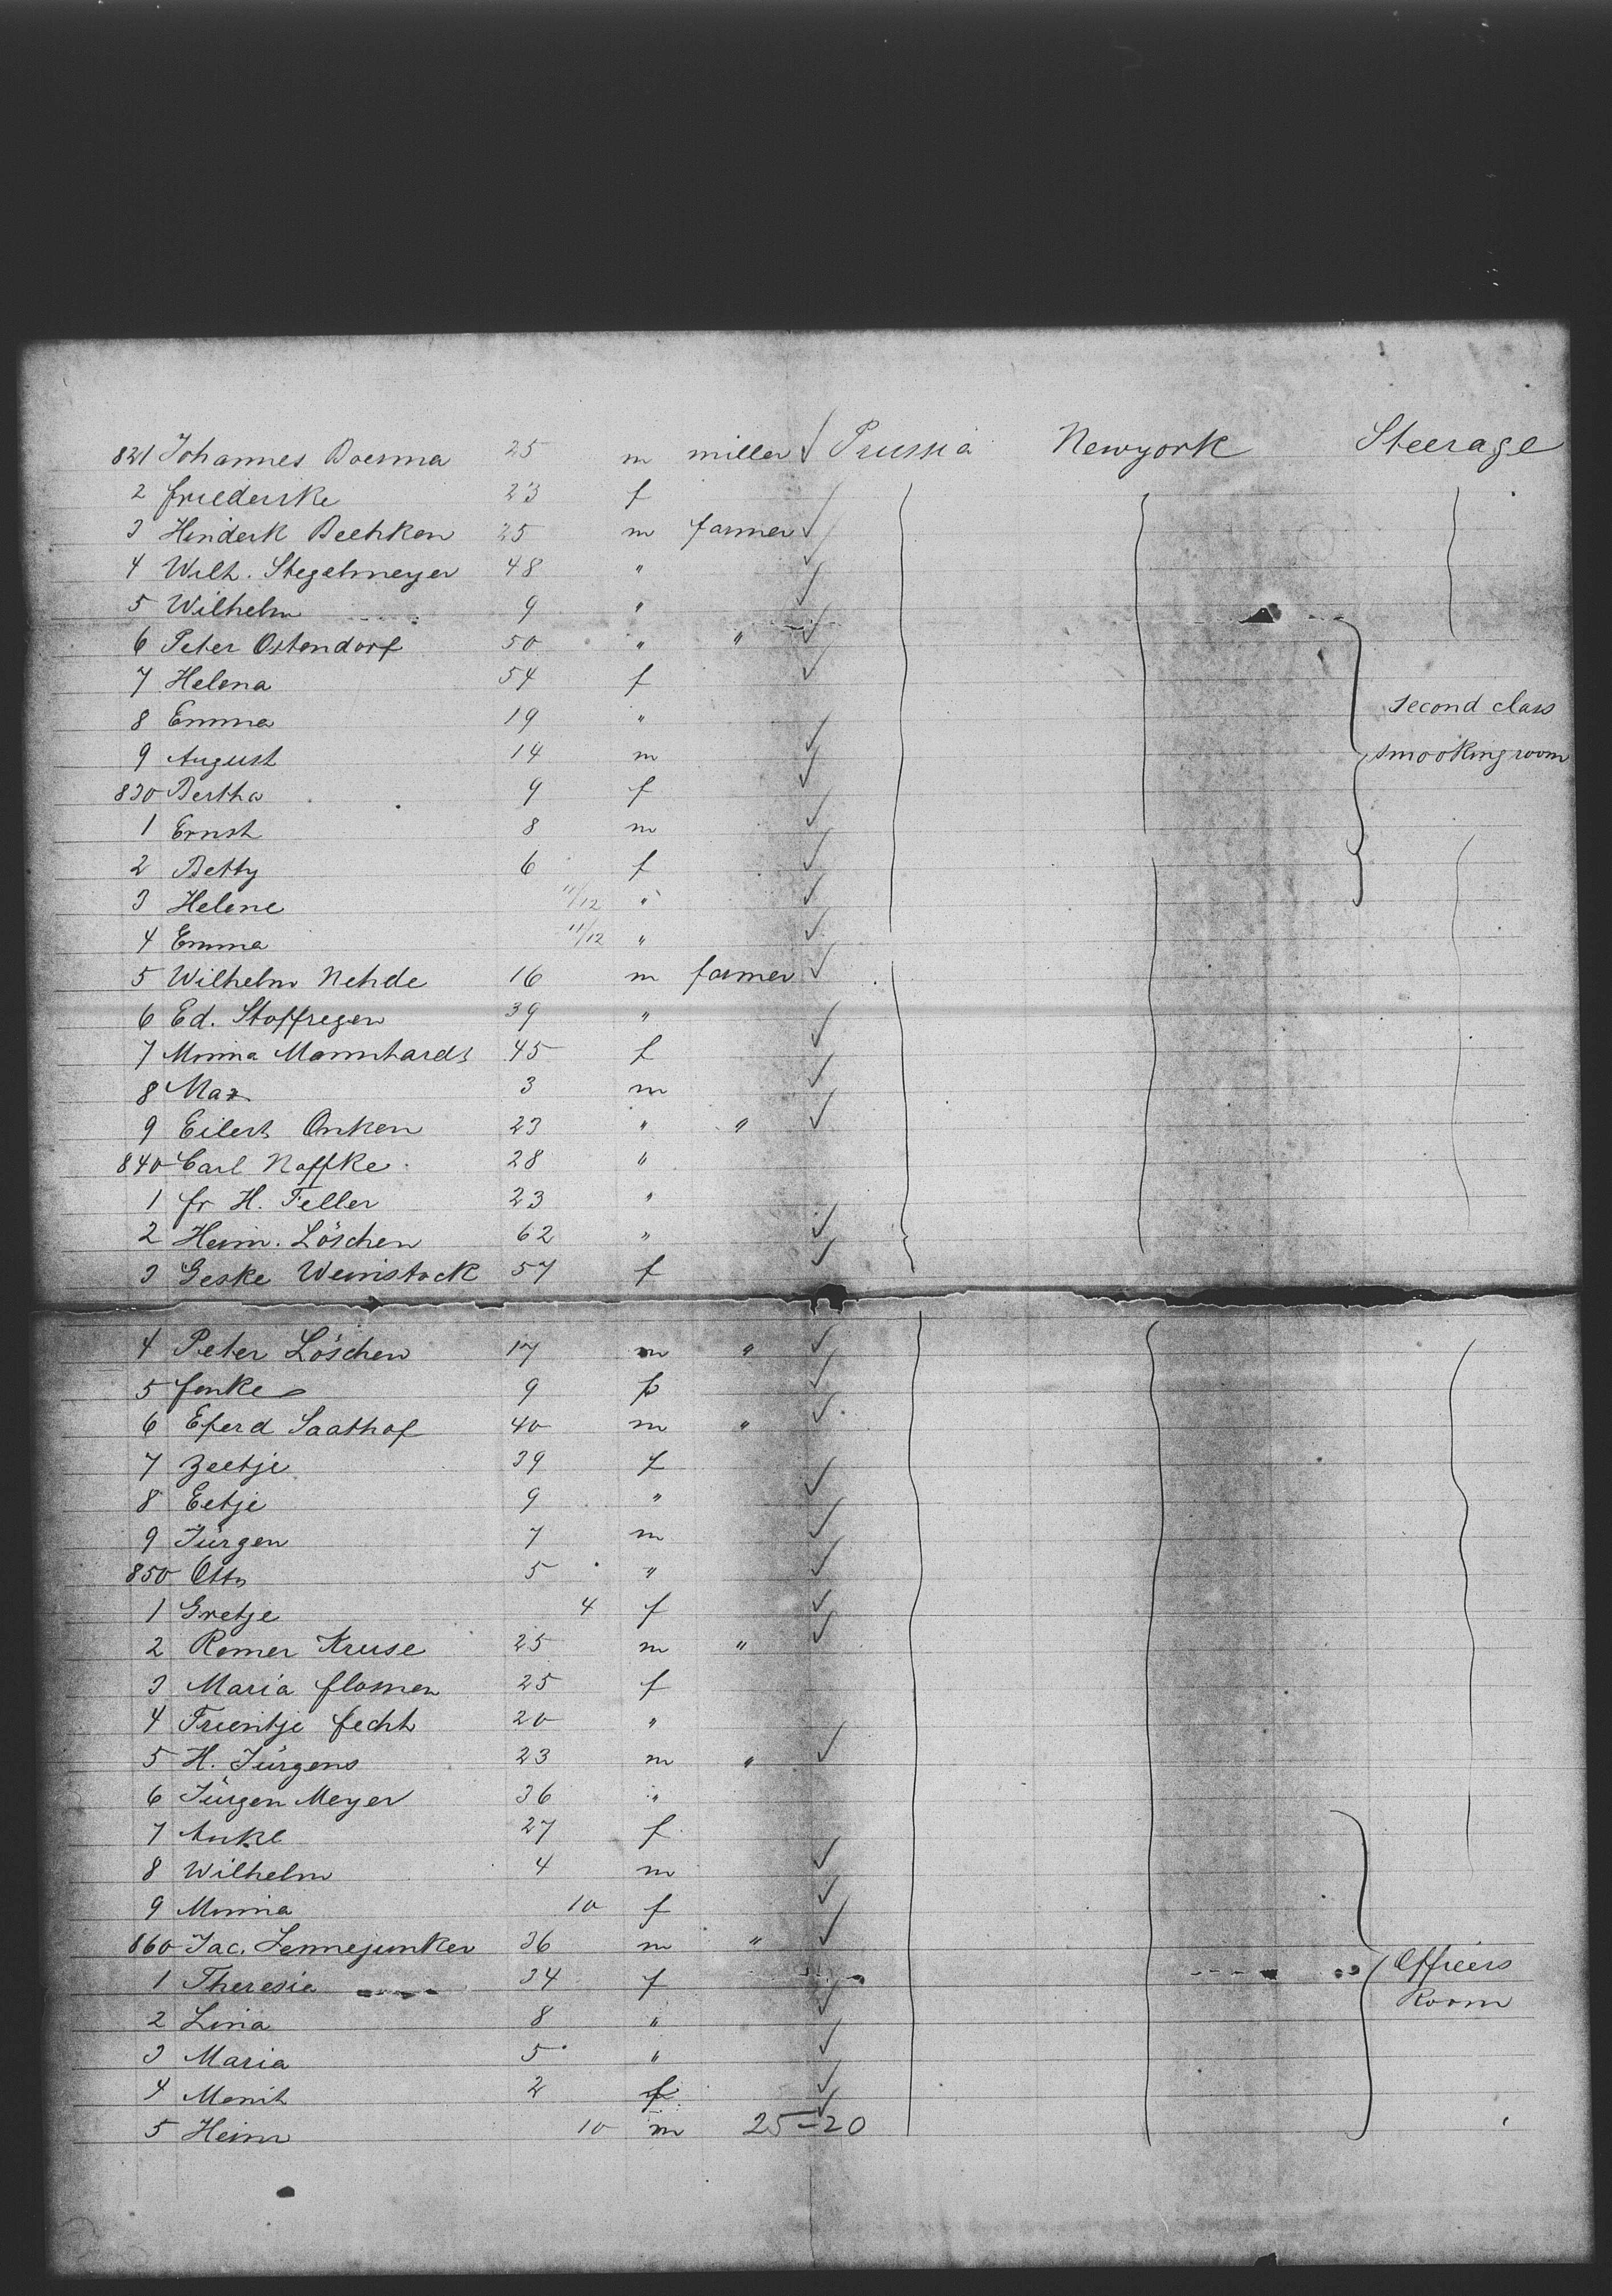 821 Johannes Boerma 25 m miller Prussia Newyork Steerage
2 friederike 23 f
3 Hinderk Beehken 25 m farmer
4 Wilh. Stegelmeyer 48 "
5 Wilhelm 9 "
6 Peter Ostendorf 50 " "
7 Helena 54 f
8 Emma 19 " second class
9 August 14 m smooking room
830 Bertha 9 f
1 Ernst 8 m
2 Betty 6 f
3 Helene 11/12 "
4 Emma 11/12 "
5 Wilhelm Nehde 16 m farmer
6 Ed. Stoffregen 39 "
7 Minna Mannhardt 45 f
8 Max 3 m
9 Eilert Onken 23 " "
840 Carl Noffke 28 "
1 fr H. Feller 23 "
2 Heinr. Löschen 62 "
3 Geske Weinstock 57 f
4 Peter Löschen 17 m "
5 fenke 9 f
6 Eferd Saathof 40 m "
7 Zeetje 39 f
8 Eetje 9 "
9 Jürgen 7 m
850 Otto 5 "
1 Gretje 4 f
2 Remer Kruse 25 m "
3 Maria 25 f
4 Trientje fecht 20 "
5 H. Jürgens 23 m "
6 Jürgen Meyer 36 "
7 Anke 27 f
8 Wilhelm 4 m
9 Minna 10 f
860 Jac. Lennejunker 36 m "
1 Theresia 34 f Officers
2 Lina 8 " Room
3 Maria 5 "
4 2 f
5 Heinr 10 m 25-20